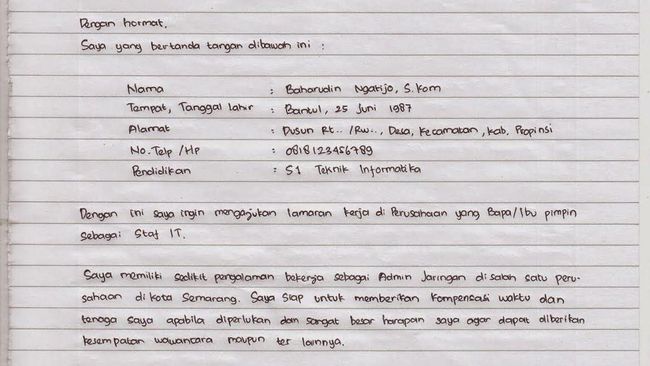 Dengan hormat,
Saya yang bertanda tangan dibawah ini :
Nama : Baharudin Ngatijo, S.Kom
Tempat, Tanggal lahir : Bantul, 25 Juni 1987
Alamat : Dusun Rt.. /Rw..., Desa, Kecamatan, Kab, Propinsi
No.Telp /Hp : 0818123456789
Pendidikan : S1 Teknik Informatika
Dengan ini saya ingin mengajukan lamaran kerja di Perusahaan yang Bapa/Ibu pimpin
sebagai Staf IT.
Saya memiliki sedikit pengalaman bekerja sebagai Admin Jaringan di salah satu peru-
sahaan di kota Semarang. Saya siap untuk memberikan kompensasi waktu dan
tenaga saya apabila diperlukan dan sangat besar harapan saya agar dapat diberikan
kesempatan wawancara maupun tes lainnya.